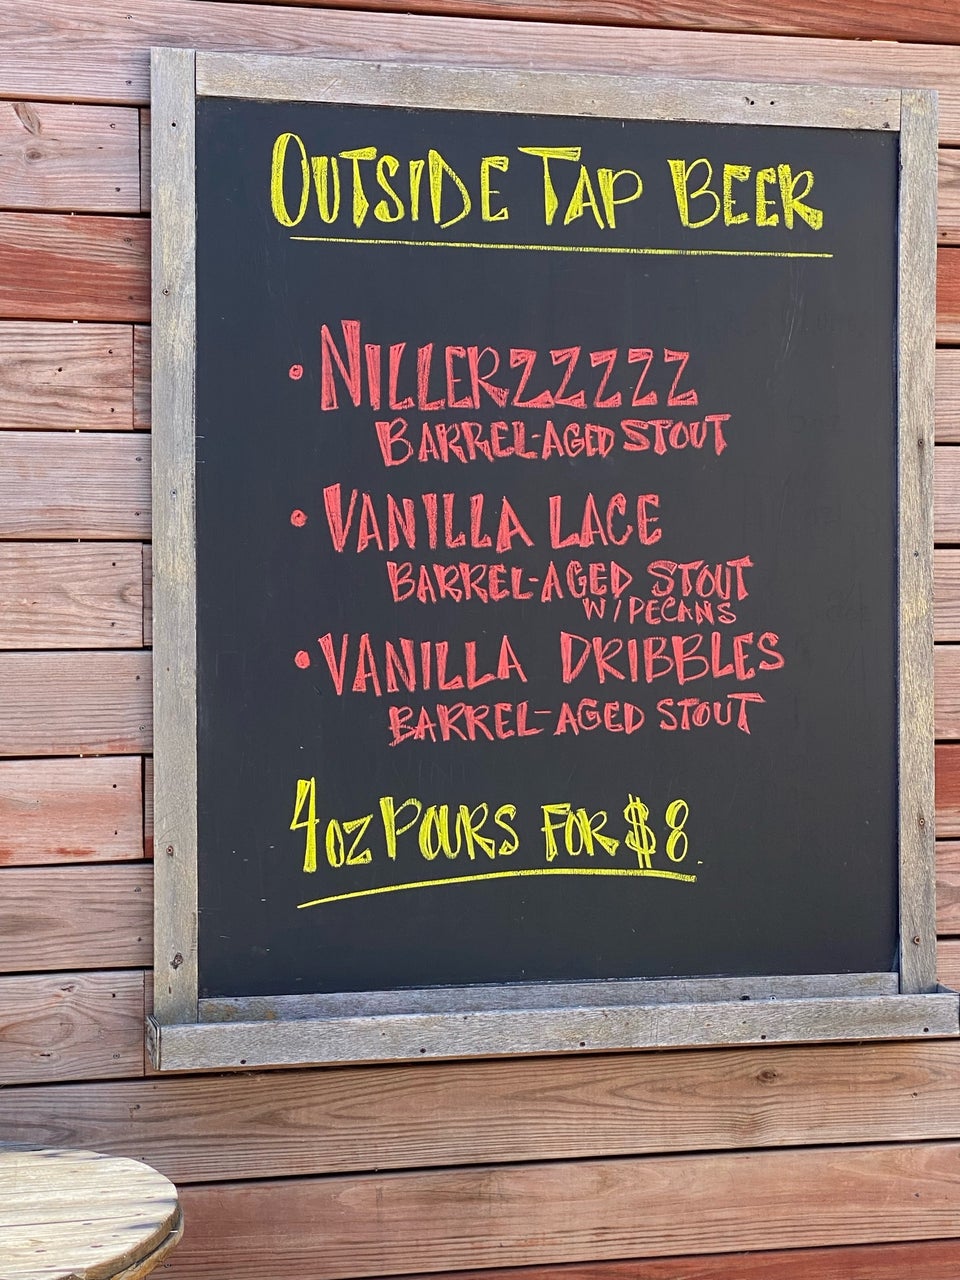 OUTSIDE TAP BEER
• NILLERZZZZZ
BARREL-AGED STOUT
• VANILLA LACE
BARREL-AGED STOUT
W/PECANS
• VANILLA DRIBBLES
BARREL-AGED STOUT
4oz POURS FOR $8